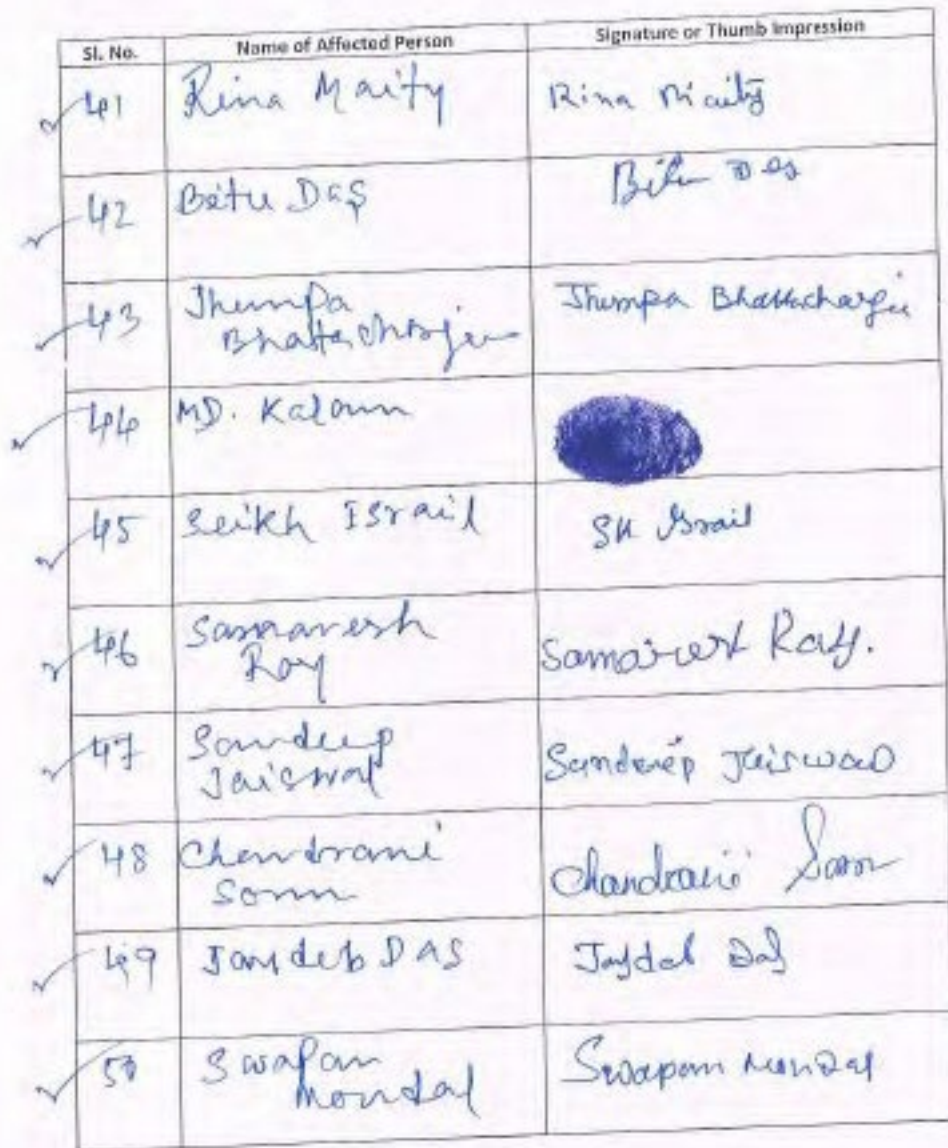 Sl. No. Name of Affected Person Signature or Thumb Impression
41 Rina Maity Rina Maity
42 Bitu Das Bitu Das
43 Jhumpa Jhumpa Bhattacharjee
Bhattacharjee
44 MD. Kalam
45 Seikh ISrail SK Israil
46 Samaresh Samaresh Roy.
Roy
47 Sandeep Sandeep Jaiswal
Jaiswal
48 Chandrani Chandrani
49 Jaydeb DAS Jaydeb Das
50 Swapan Swapan Mondal
Mondal